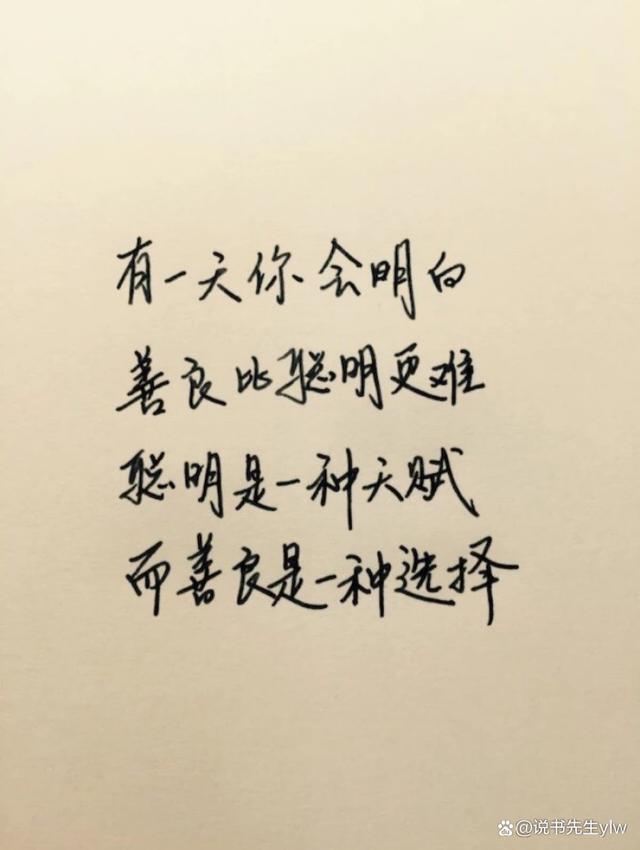 有一天你会明白
善良比聪明更难
聪明是一种天赋
而善良是一种选择
@说书先生ylw